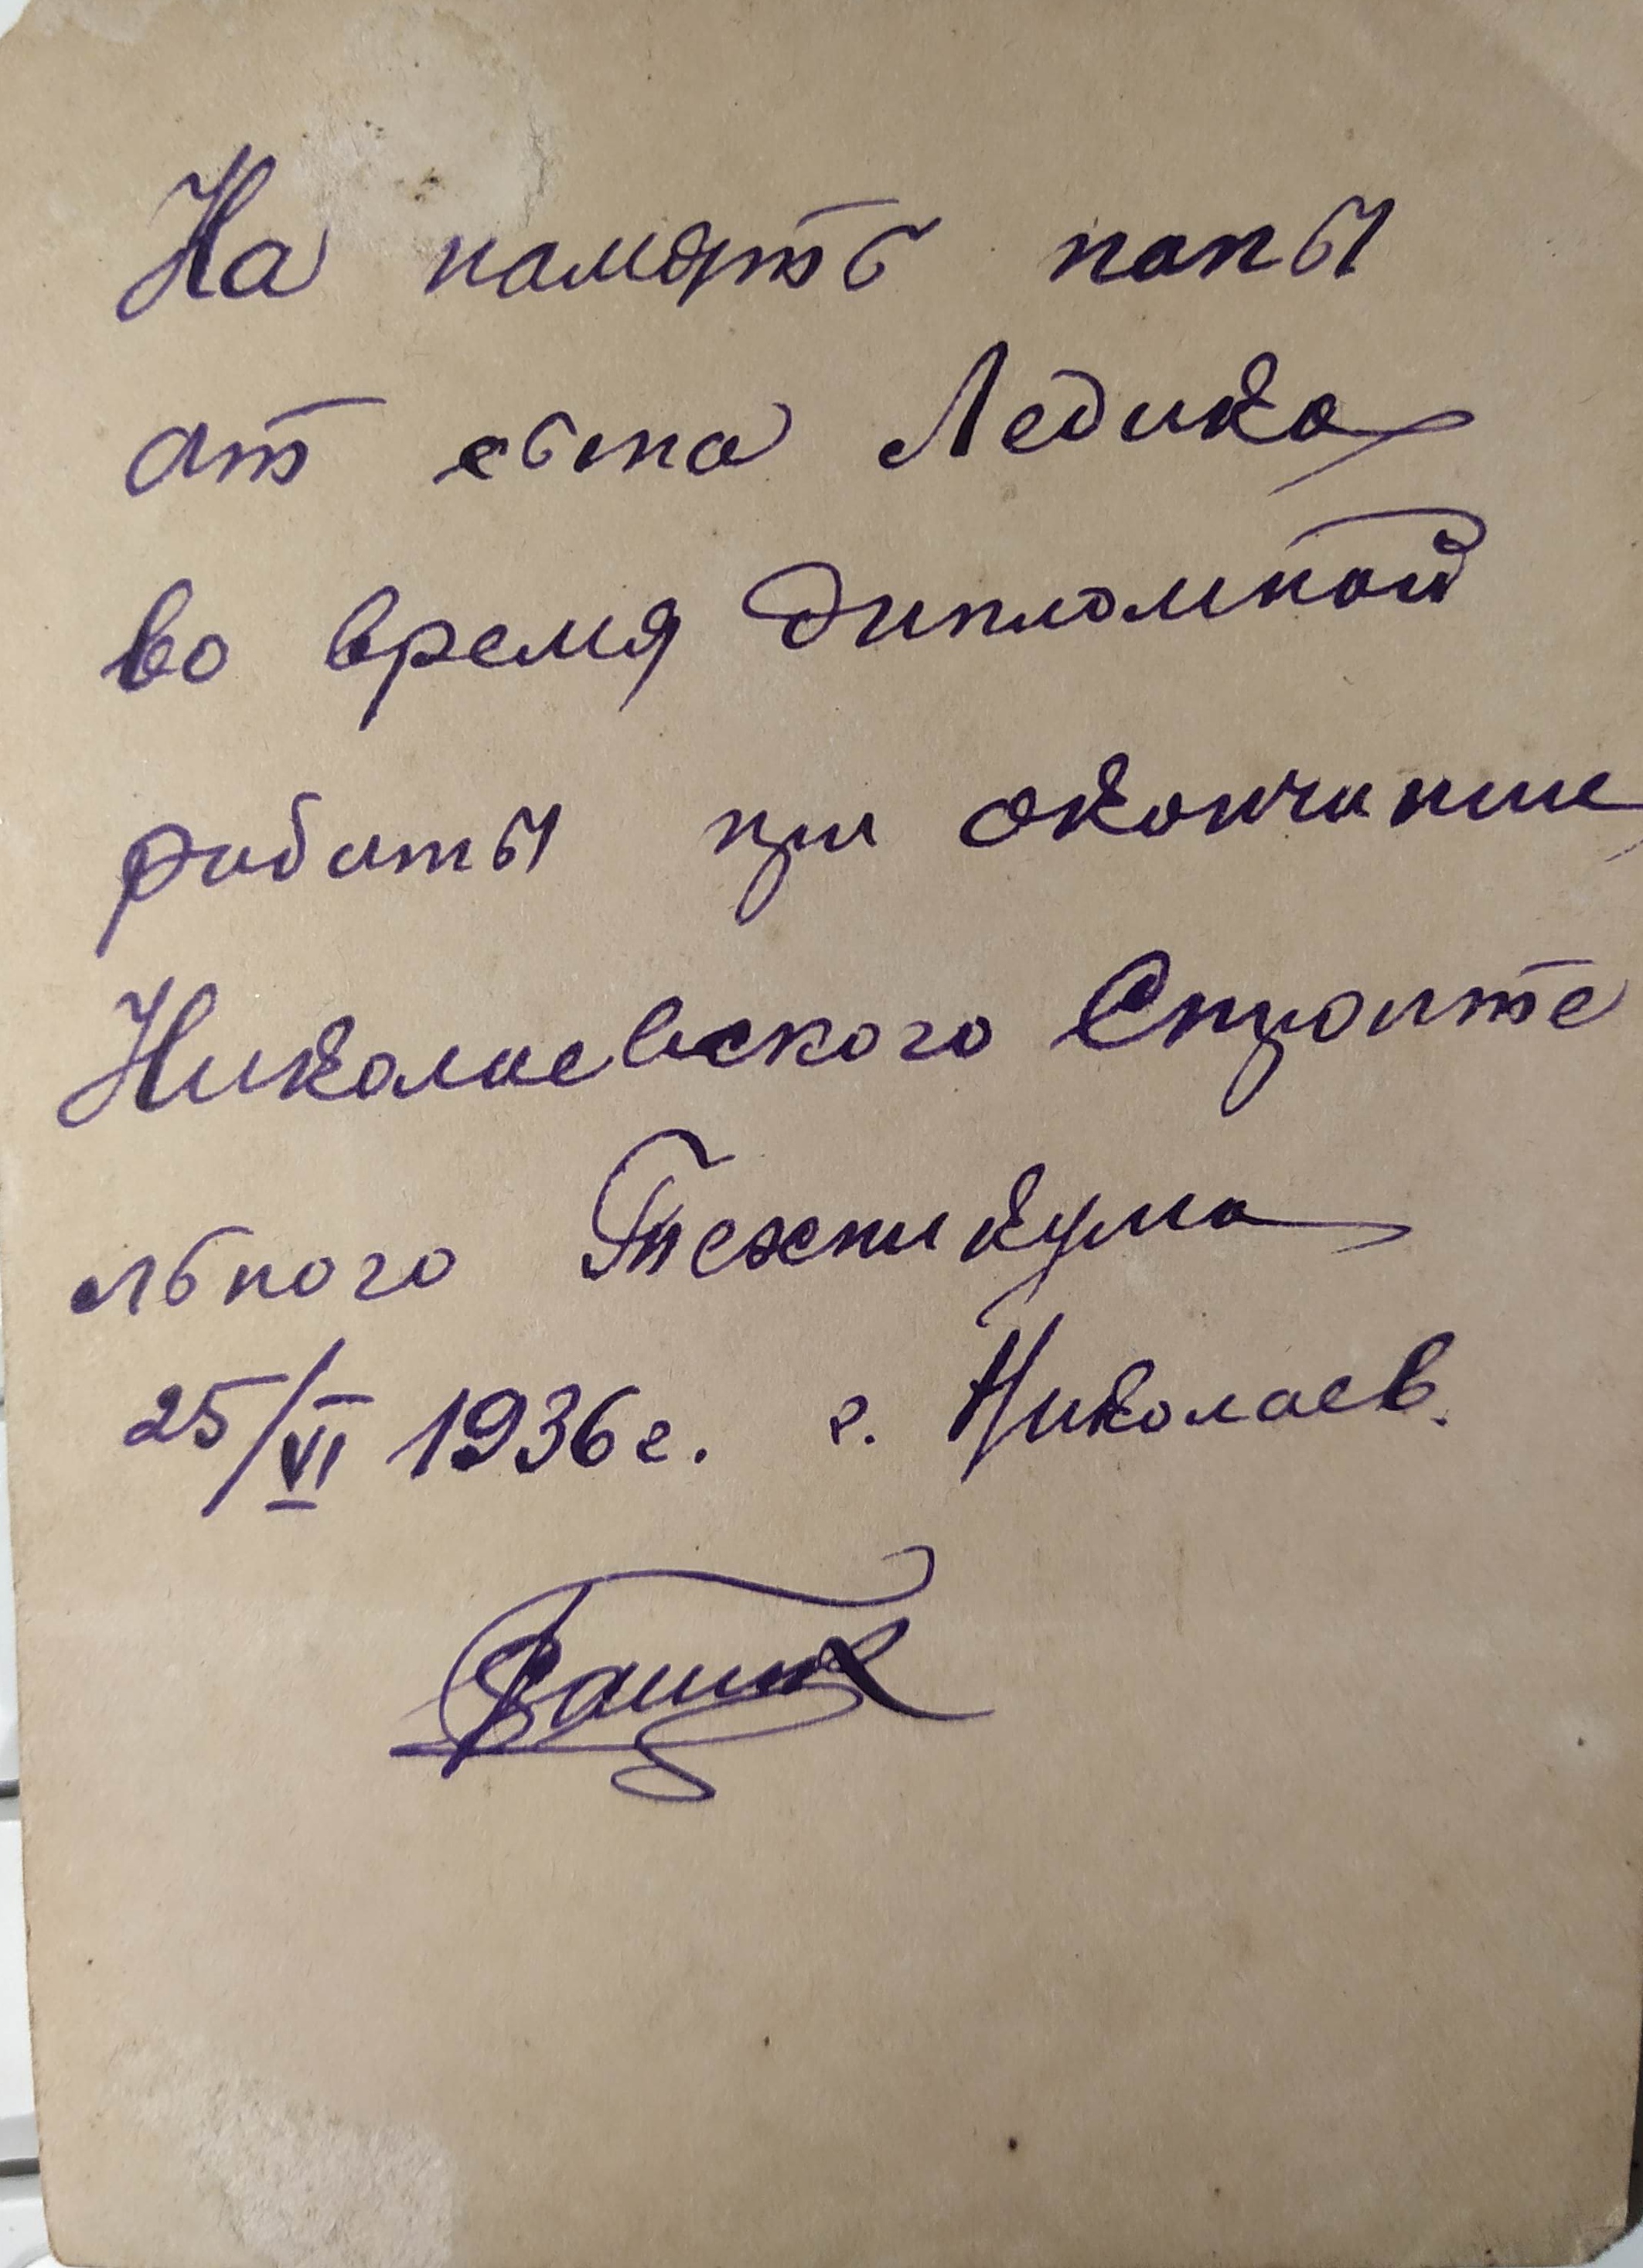 На память папы
от сына Ледика
во время дипломной
работы при окончание
Николаевского Строите
льного Техникума
25/VI 1936 г. г. Николаев.